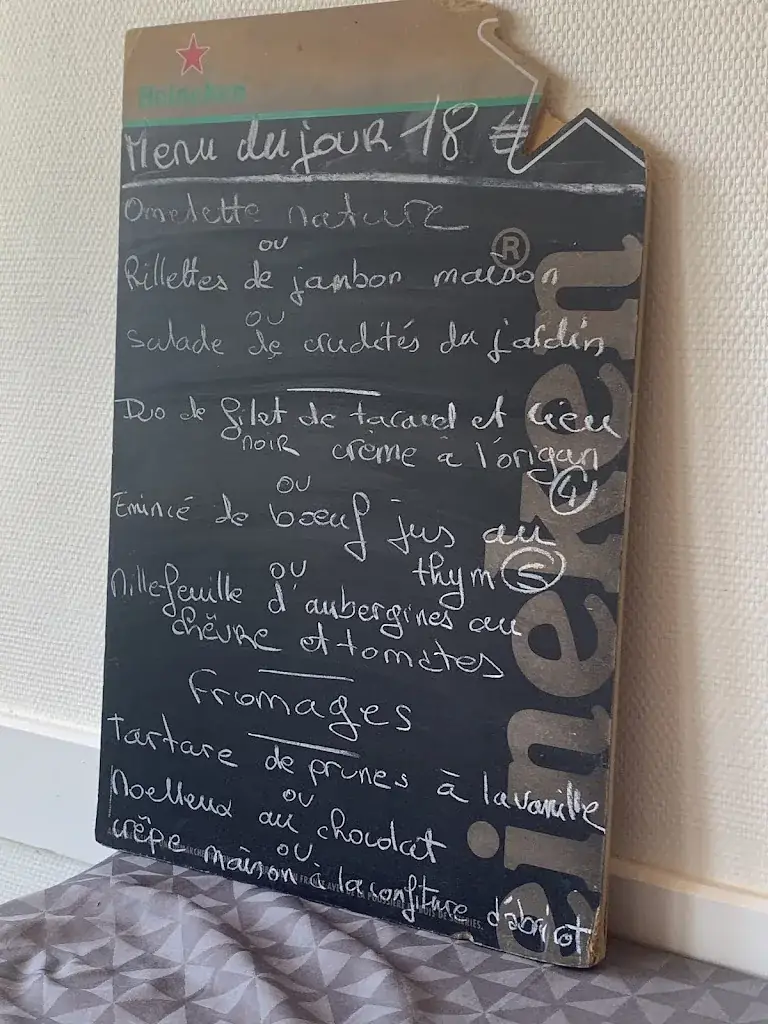 Heineken
Menu du jour 18 €
Omelette nature
ou
Rillettes de jambon maison
ou
Salade de crudités du jardin
Duo de filet de tacaud et lieu
noir crème à l'origan
4
ou
Emincé de boeuf jus au
thym 5
ou
Mille-feuille d'aubergines au
chèvre et tomates
Fromages
Tartare de prunes à la vanille
ou
Moelleux au chocolat
ou
crêpe maison à la confiture d'abricot
eineken ®